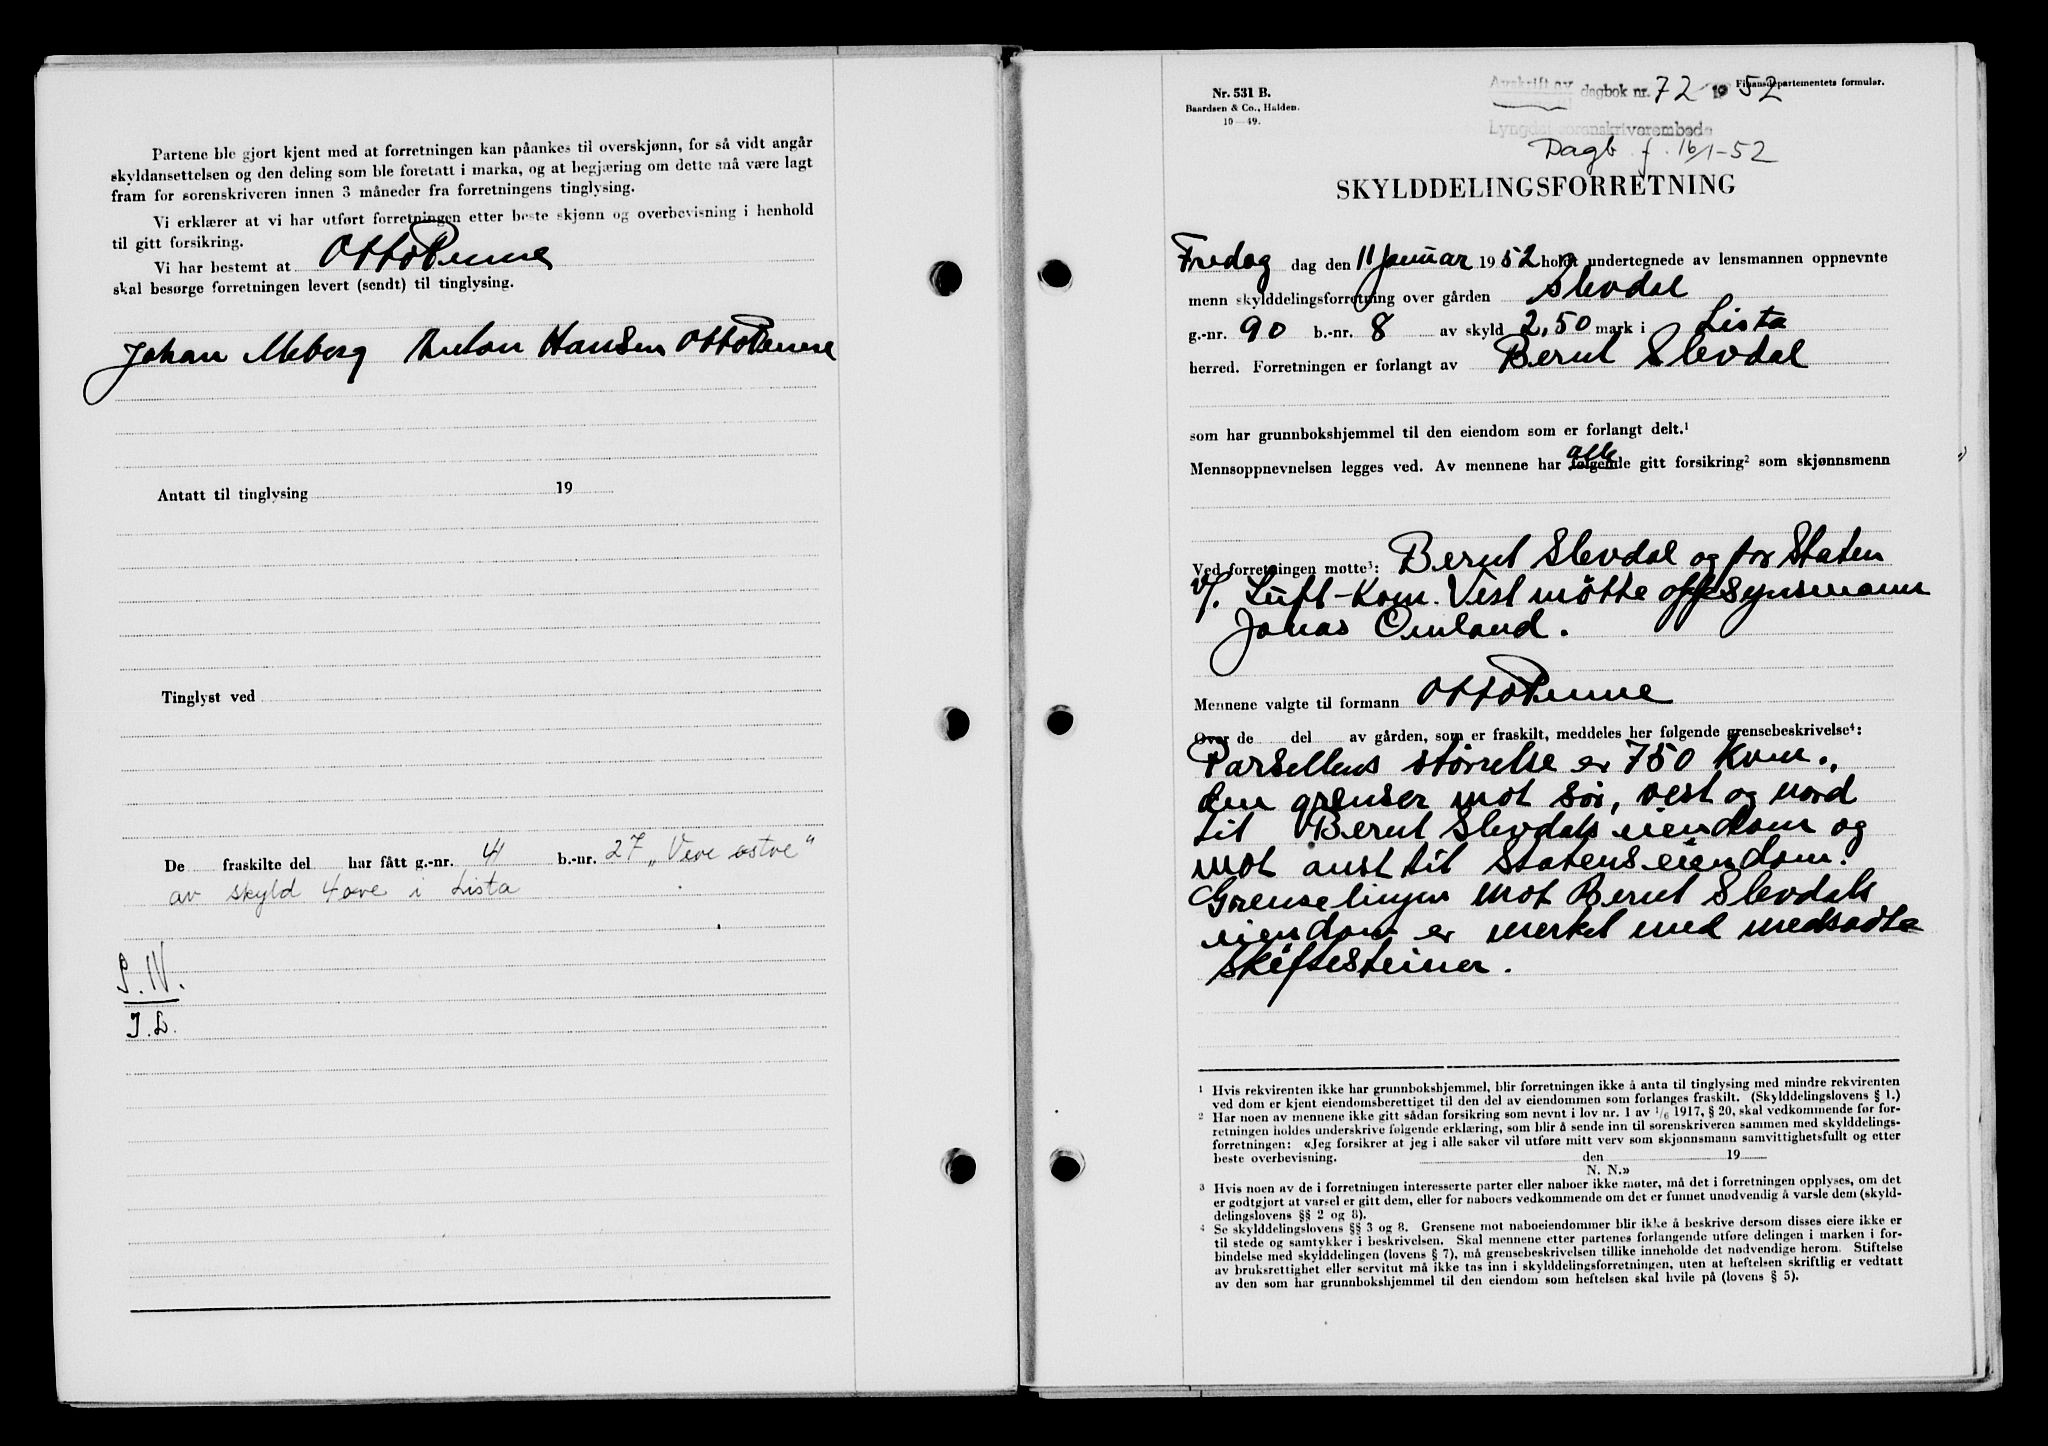 Partene ble gjort kjent med at forretningen kan påankes til overskjønn, for så vidt angår
skyldansettelsen og den deling som ble foretatt i marka, og at begjæring om dette må være lagt
fram for sorenskriveren innen 3 måneder fra forretningens tinglysing.
Vi erklærer at vi har utført forretningen etter beste skjønn og overbevisning i henhold
til gitt forsikring.
Vi har bestemt at Otto Penne
skal besørge forretningen levert (sendt) til tinglysing.
Johan Meberg Anton Hansen Otto Penne
Antatt til tinglysing 19
Tinglyst ved
De fraskilte del har fått g.-nr. 41 b.-nr. 27 „Vere østre“
av skyld 4 øre i Lista
S. IV.
J. L.
Nr. 531 B.
Baardsen & Co., Halden.
10—49.
Avskrift av dagbok nr. 72 1952 Finansdepartementets formular.
Lyngdal sorenskriverembede
Dagb f. 16/1-52
SKYLDDELINGSFORRETNING
Fredag dag den 11 Januar 1952 holdt undertegnede av lensmannen oppnevnte
menn skylddelingsforretning over gården Slevdal
g.-nr. 90 b.-nr. 8 av skyld 2,50 mark i Lista
herred. Forretningen er forlangt av Bernt Slevdal
som har grunnbokshjemmel til den eiendom som er forlangt delt.¹
Mennsoppnevnelsen legges ved. Av mennene har følgende alle gitt forsikring² som skjønnsmenn
Ved forretningen møtte³: Bernt Slevdal og for Staten
v/. Luft-Kom. Vest møtte off. Synsmann
Jonas Omland.
Mennene valgte til formann Otto Penne
Over de del av gården, som er fraskilt, meddeles her følgende grensebeskrivelse⁴:
Parsellens størrelse er 750 Kvm.,
den grenser mot sør, vest og nord
til Bernt Slevdals eiendom og
mot aust til Statens eiendom.
Grenselinjen mot Bernt Slevdals
eiendom er merket med nedsadte
skiftesteiner.
¹ Hvis rekvirenten ikke har grunnbokshjemmel, blir forretningen ikke å anta til tinglysing med mindre rekvirenten
ved dom er kjent eiendomsberettiget til den del av eiendommen som forlanges fraskilt. (Skylddelingslovens § 1.)
² Har noen av mennene ikke gitt sådan forsikring som nevnt i lov nr. 1 av 1/6 1917, § 20, skal vedkommende før for-
retningen holdes underskrive følgende erklæring, som blir å sende inn til sorenskriveren sammen med skylddelings-
forretningen: «Jeg forsikrer at jeg i alle saker vil utføre mitt verv som skjønnsmann samvittighetsfullt og etter
beste overbevisning. den 19
N. N.»
³ Hvis noen av de i forretningen interesserte parter eller naboer ikke møter, må det i forretningen opplyses, om det
er godtgjort at varsel er gitt dem, eller for naboers vedkommende om det er funnet unødvendig å varsle dem (skyld-
delingslovens §§ 2 og 8).
⁴ Se skylddelingslovens §§ 3 og 8. Grensene mot naboeiendommer blir ikke å beskrive dersom disses eiere ikke er
til stede og samtykker i beskrivelsen. Skal mennene etter partenes forlangende utføre delingen i marken i for-
bindelse med skylddelingen (lovens § 7), må grensebeskrivelsen tillike inneholde det nødvendige herom. Stiftelse
av bruksrettighet eller servitut må ikke tas inn i skylddelingsforretningen, uten at heftelsen skriftlig er vedtatt
av den som har grunnbokshjemmel til den eiendom som heftelsen skal hvile på (lovens § 5).